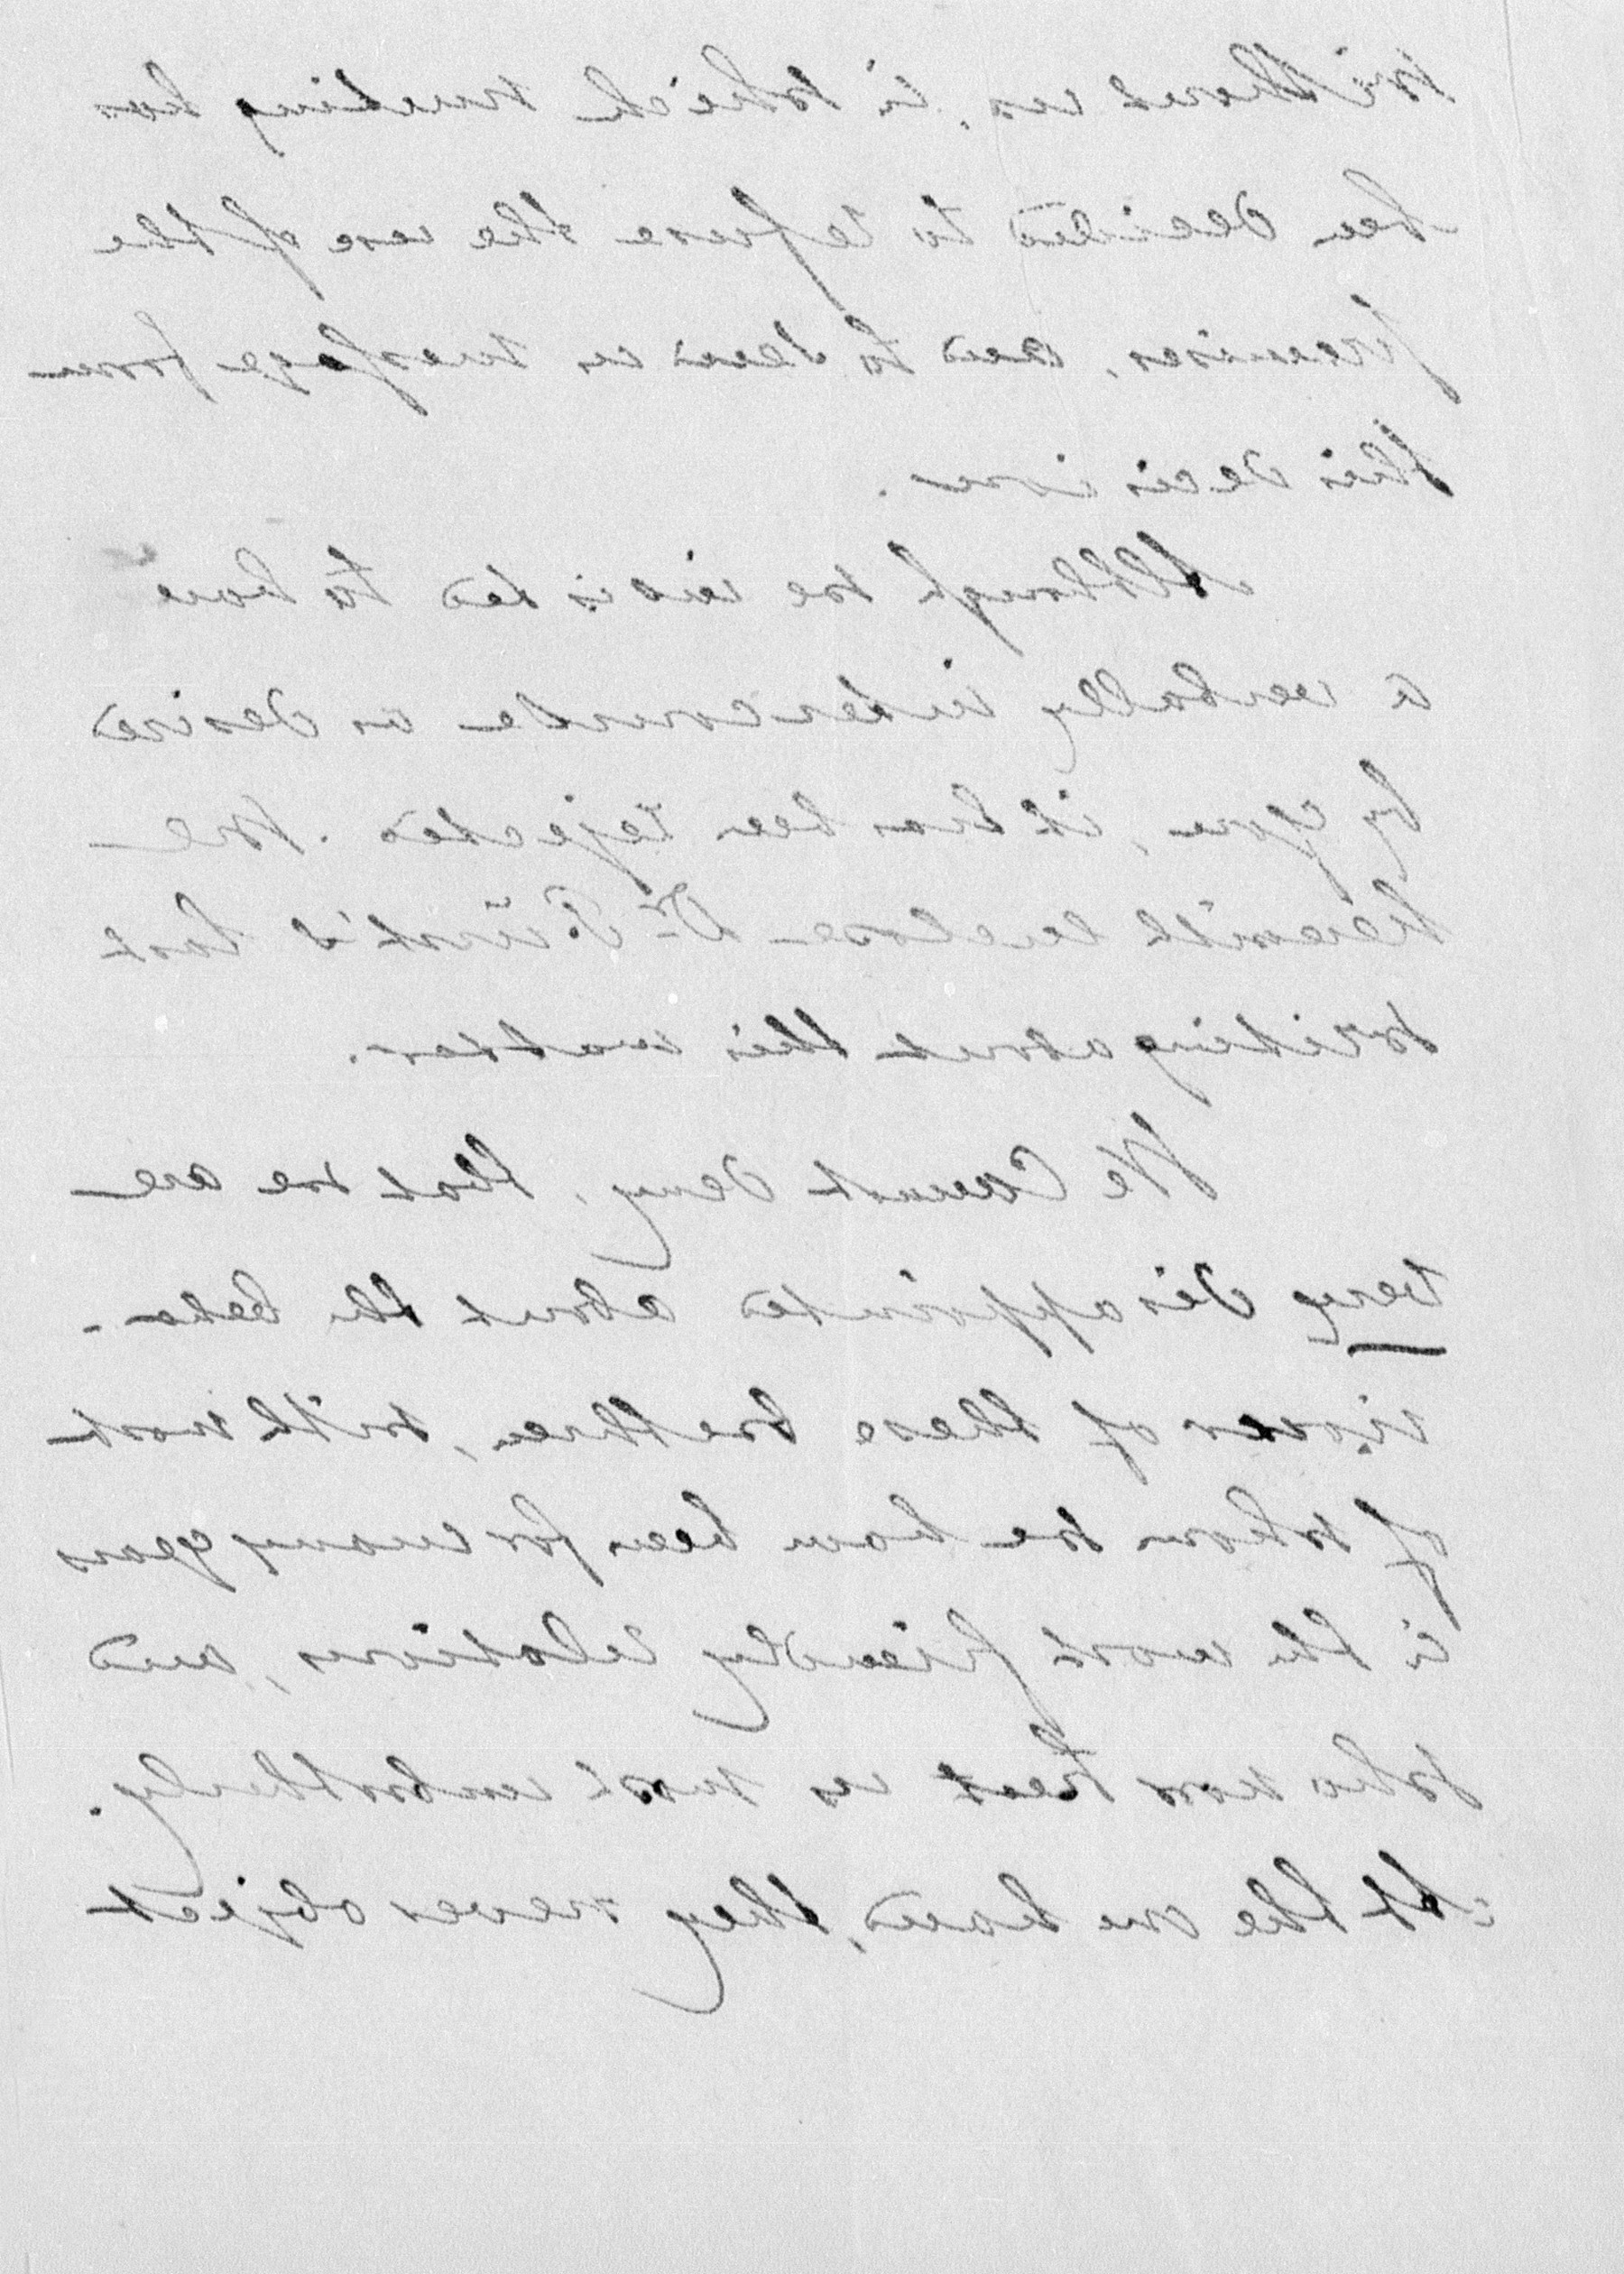 without us, in which meeting has
been decided to refuse the use of the
premises, and to send us message from
this decision.
Although we insisted to have
a verbally intercourse as desired
by you, it has been rejected. We
herewith enclose Dr. Fürst's last
writing about this matter.
We Cannot deny, that we are
very disappointed about the beha-
viour of these brethren, with most
of whom we have been for many years
in the most friendly relations, and
who now treat us most unbrotherly.
At the one hand, they never object